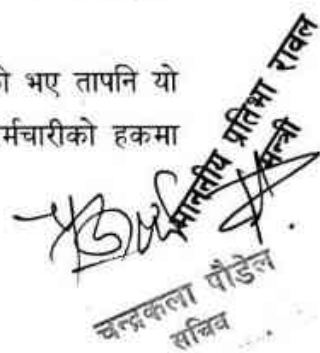 ो भए तापनि यो
र्मचारीको हकमा
माननीय प्रतिभा रावल
मन्त्री
चन्द्रकला पौडेल
सचिव